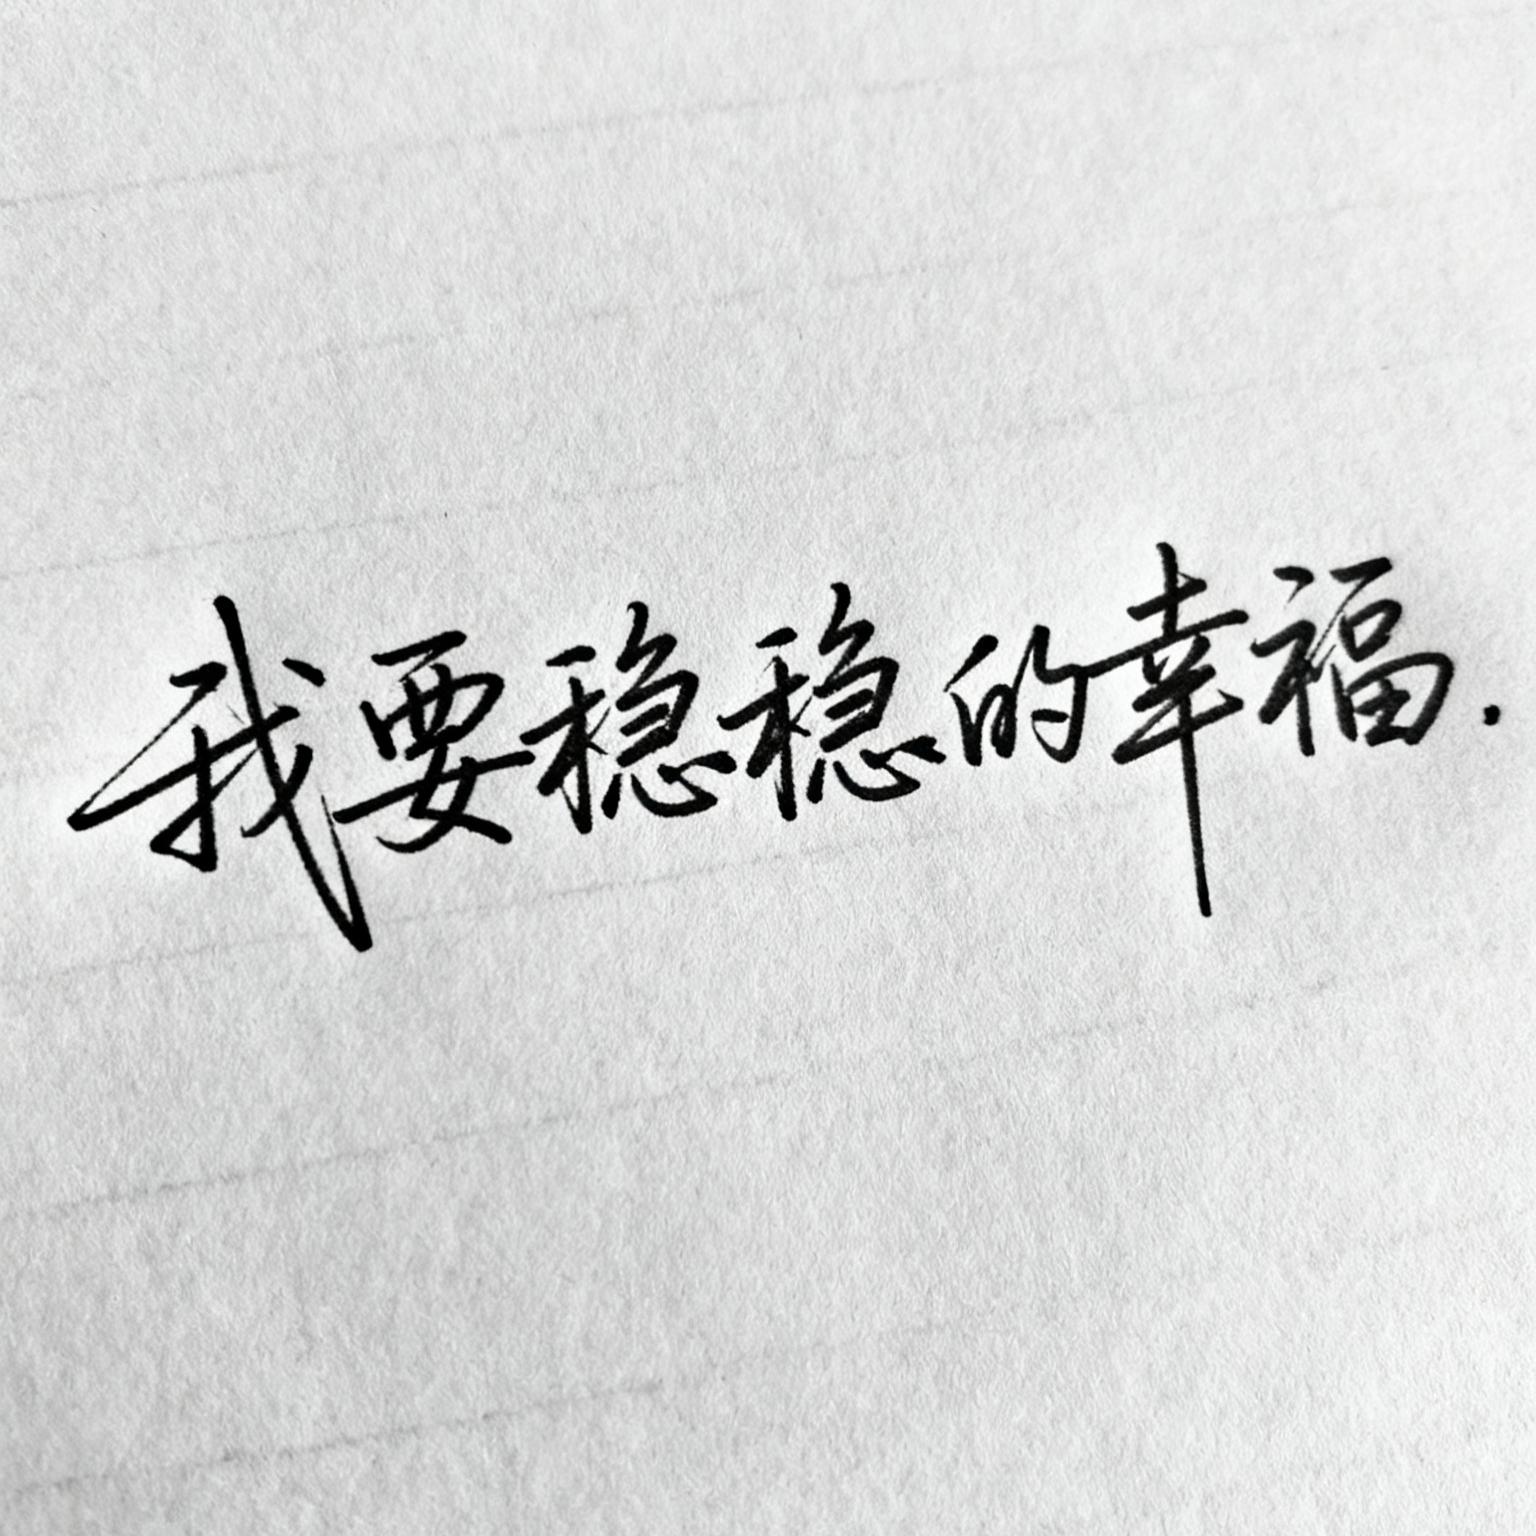 我要稳稳的幸福.